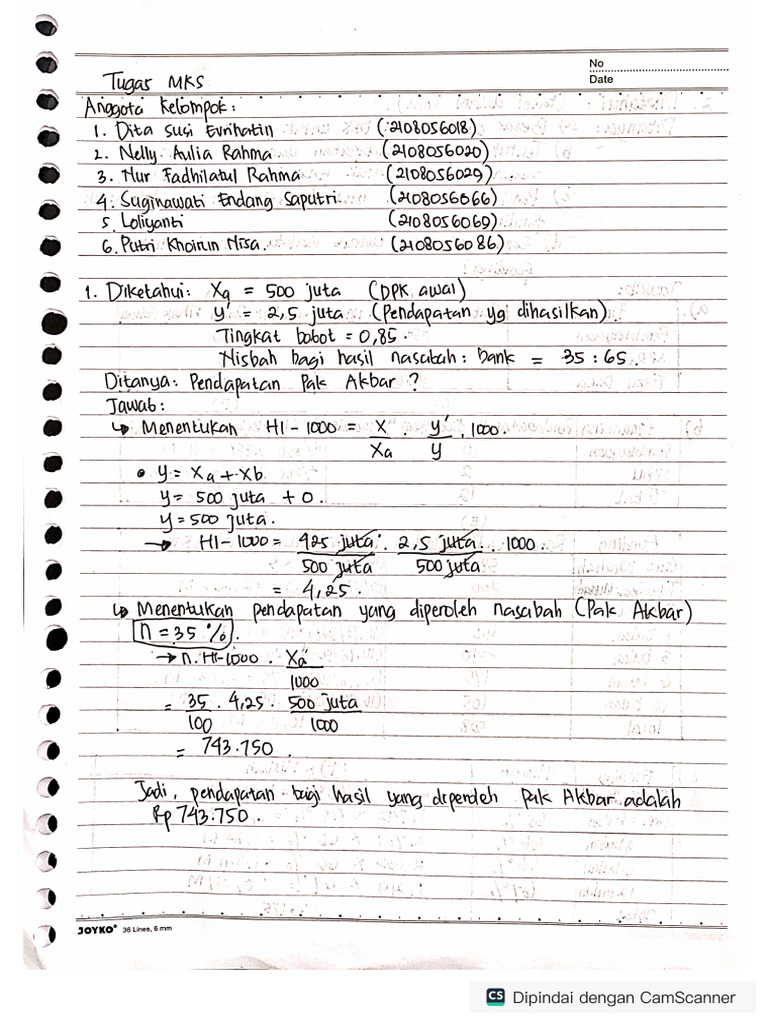 No
Date
Tugas MKS
Anggota Kelompok :
1. Dita Susi Evrihatin (2108056018)
2. Nelly Aulia Rahma (2108056020)
3. Nur Fadhilatul Rahma (2108056029)
4. Suginawati Endang Saputri (2108056066)
5. Loliyanti (2108056069)
6. Putri Khoirun Nisa. (2108056086)
1. Diketahui: Xq = 500 juta (DPK awal)
y' = 2,5 juta (Pendapatan yg dihasilkan)
Tingkat bobot = 0,85.
Nisbah bagi hasil nasabah : Bank = 35 : 65.
Ditanya: Pendapatan Pak Akbar ?
Jawab:
↳ Menentukan HI - 1000 = X/Xa . y'/y . 1000.
• y = Xa + Xb
y = 500 juta + 0.
y = 500 juta.
→ HI - 1000 = 425 juta/500 juta . 2,5 juta/500 juta . 1000.
= 4,25.
↳ Menentukan pendapatan yang diperoleh nasabah (Pak Akbar)
n = 35 %.
→ n. HI-1000 . Xa/1000
= 35/100 . 4,25 . 500 juta/1000
= 743.750.
Jadi, pendapatan bagi hasil yang diperoleh Pak Akbar adalah
Rp 743.750.
JOYKO® 36 Lines, 6 mm
CS Dipindai dengan CamScanner